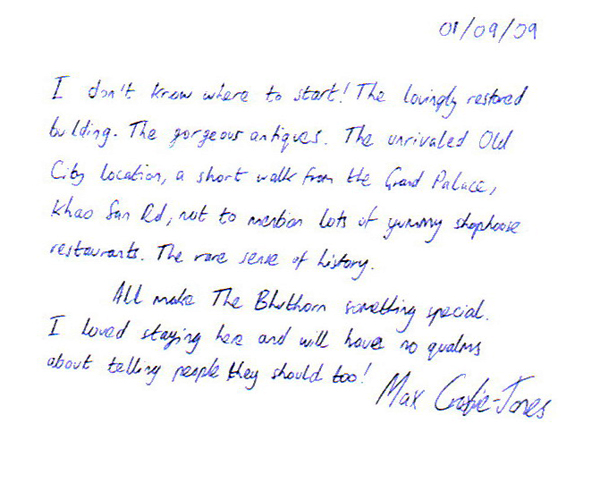 01/09/09
I don't know where to start! The lovingly restored
building. The gorgeous antiques. The unrivaled Old
City location, a short walk from the Grand Palace,
Khao San Rd, not to mention lots of yummy shophouse
restaurants. The rare sense of history.
All make The Bhuthorn something special.
I loved staying here and will have no qualms
about telling people they should too!
Max Crosbie-Jones